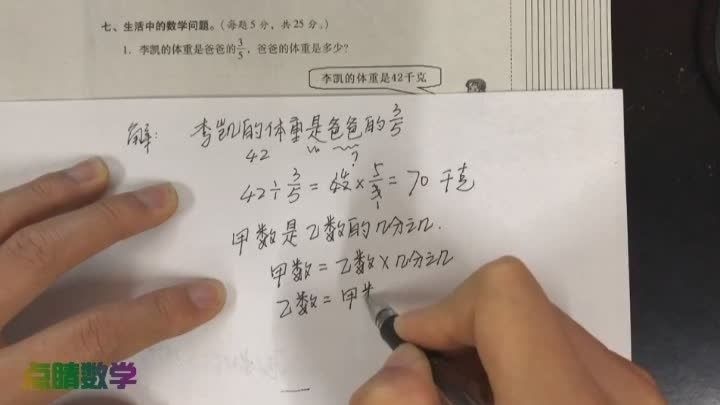 七、生活中的数学问题。(每题5分,共25分。)
1. 李凯的体重是爸爸的3/5,爸爸的体重是多少?
李凯的体重是42千克
解: 李凯的体重是爸爸的3/5
42 ?
42÷3/5=42×5/3=70千克
甲数是乙数的几分之几.
甲数=乙数×几分之几
乙数=甲
点睛数学